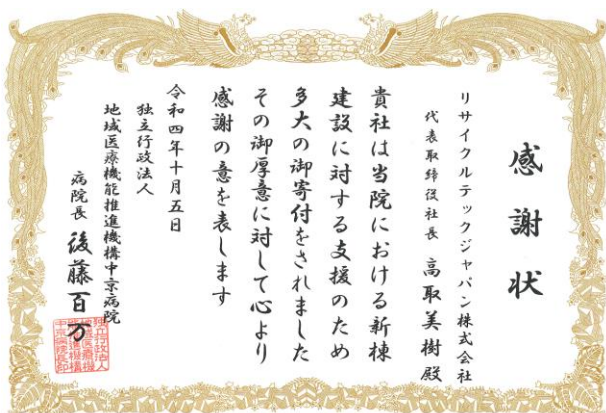 感謝状
リサイクルテックジャパン株式会社
代表取締役社長 高取美樹殿
貴社は当院における新棟
建設に対する支援のため
多大の御寄付をされました
その御厚意に対して心より
感謝の意を表します
令和四年十月五日
独立行政法人
地域医療機能推進機構中京病院
病院長 後藤百万